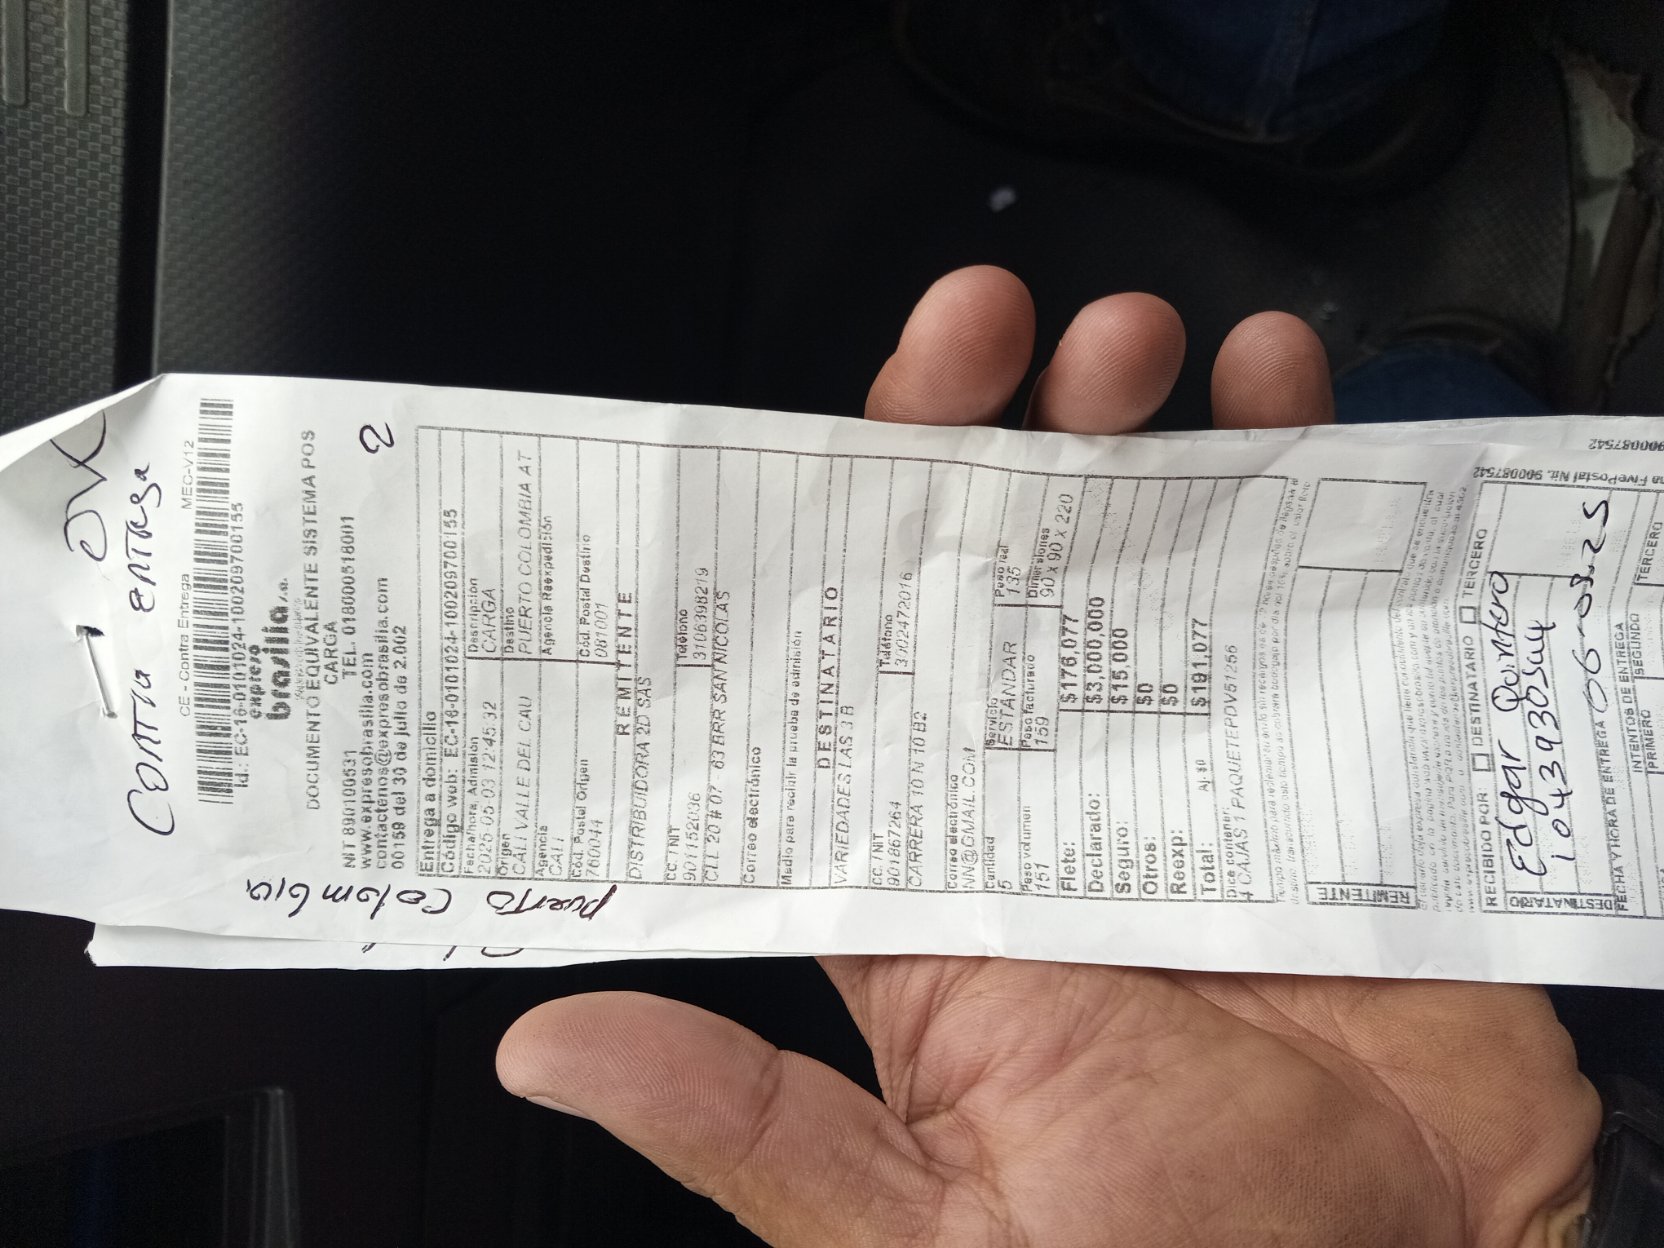 OK
Contra entrega
CE - Contra Entrega MEC-V12
Id.: EC-16-0101024-100209700155
expreso
brasilia s.a.
DOCUMENTO EQUIVALENTE SISTEMA POS
CARGA
NIT 890100531 TEL. 018000518001
www.expresobrasilia.com
contactenos@expresobrasilia.com
00159 del 30 de julio de 2.002
2
Puerto Colombia
Entrega a domicilio
Código web: EC-16-0101024-100209700155
Fecha/hora Admisión Descripción
2025-05-03 12:45:32 CARGA
Origen Destino
CALI VALLE DEL CAU PUERTO COLOMBIA AT
Agencia Agencia Reexpedición
CALI
Cód. Postal Origen Cód. Postal Destino
760044 081001
REMITENTE
DISTRIBUIDORA 2D SAS
CC. / NIT Teléfono
901152036 3106398219
CLL 20 # 07 - 63 BRR SAN NICOLAS
Correo electrónico
Medio para recibir la prueba de admisión
DESTINATARIO
VARIEDADES LAS 3B
CC. / NIT Teléfono
901867264 3002472016
CARRERA 10 N 10 B2
Correo electrónico
NN@GMAIL.COM
Cantidad Servicio Peso real
5 ESTÁNDAR 135
Peso volumen Peso facturado Dimensiones
151 159 90 x 90 x 220
Flete: $176,077
Declarado: $3,000,000
Seguro: $15,000
Otros: $0
Reexp: $0
Total: Aj. $0 $191,077
Dice contener:
4 CAJAS 1 PAQUETE PDV51256
REMITENTE
RECIBIDO POR: DESTINATARIO TERCERO
DESTINATARIO
Edgar Quintero
1043930544
FECHA Y HORA DE ENTREGA 06-05-25
INTENTOS DE ENTREGA
PRIMERO SEGUNDO TERCERO
FivePostal Nit. 900087542
900087542